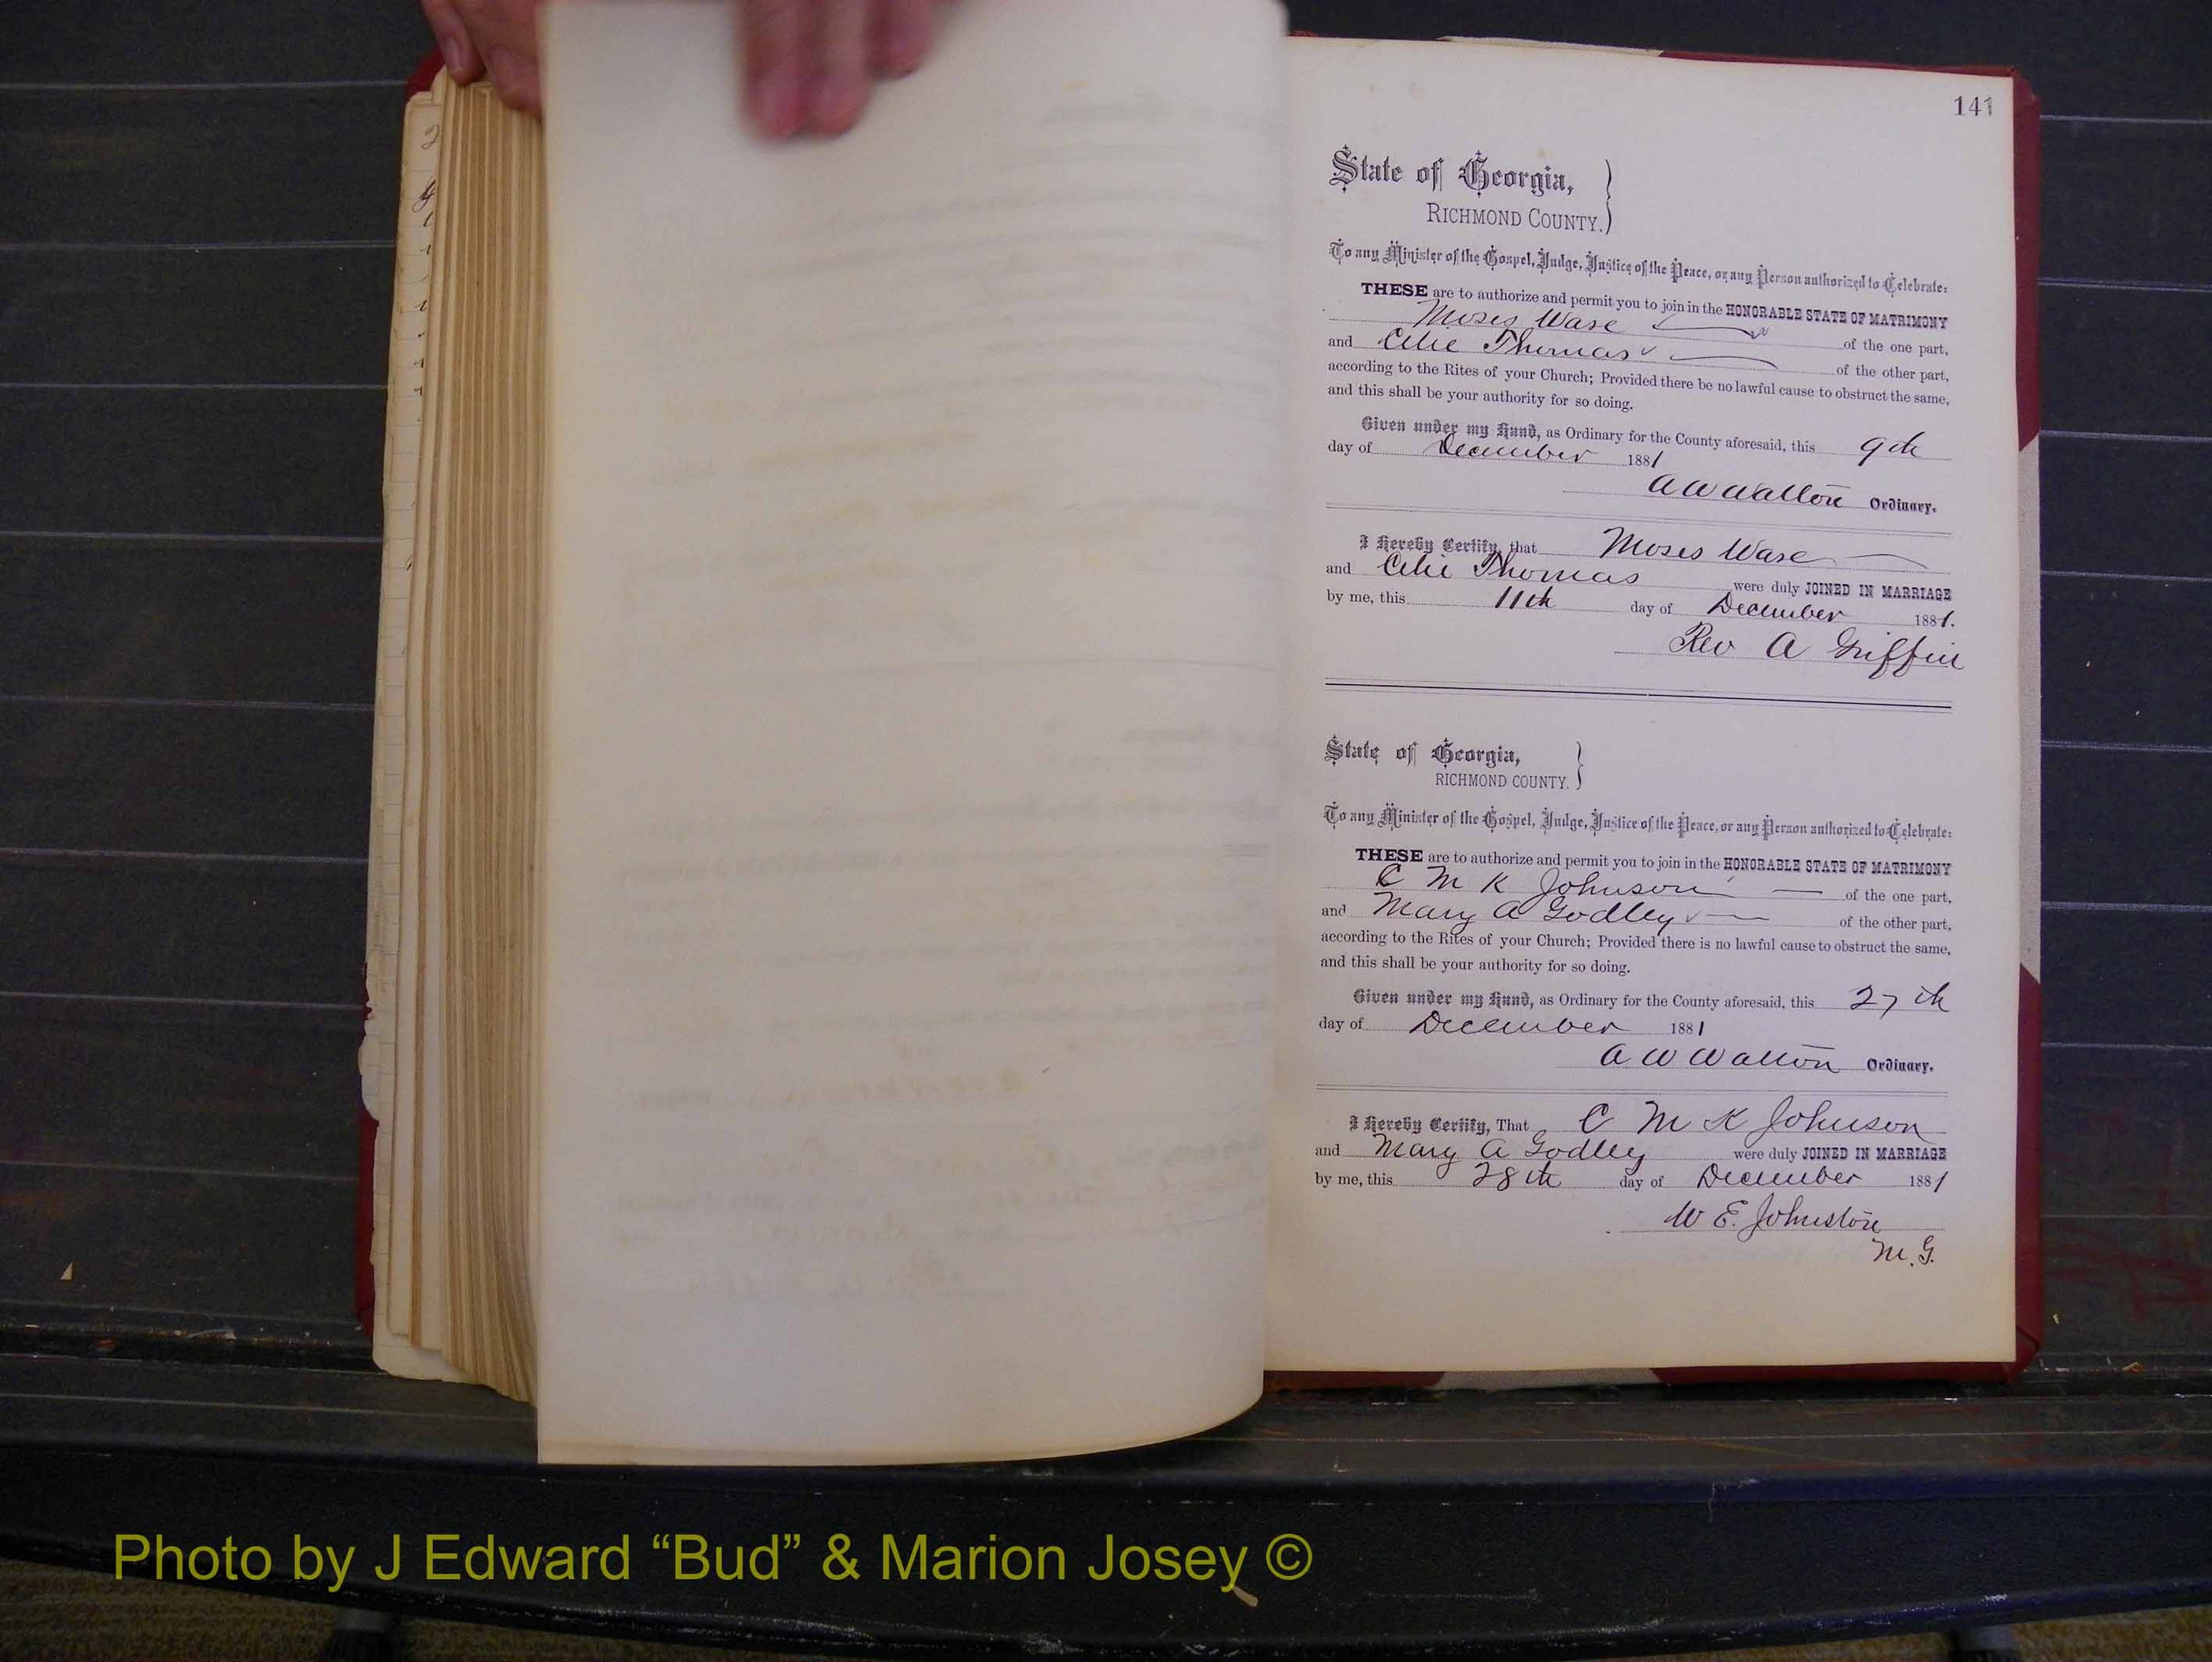 141
State of Georgia,
RICHMOND COUNTY.
To any Minister of the Gospel, Judge, Justice of the Peace, or any Person authorized to Celebrate:
THESE are to authorize and permit you to join in the HONORABLE STATE OF MATRIMONY
Moses Wase of the one part,
and Celie Thomas of the other part,
according to the Rites of your Church; Provided there be no lawful cause to obstruct the same,
and this shall be your authority for so doing.
Given under my Hand, as Ordinary for the County aforesaid, this 9th
day of December 1881
A W Walton Ordinary.
I Hereby Certify, that Moses Wase
and Celie Thomas were duly JOINED IN MARRIAGE
by me, this 11th day of December 1881.
Rev A Griffin
State of Georgia,
RICHMOND COUNTY.
To any Minister of the Gospel, Judge, Justice of the Peace, or any Person authorized to Celebrate:
THESE are to authorize and permit you to join in the HONORABLE STATE OF MATRIMONY
C M K Johnson of the one part,
and Mary A Godley of the other part,
according to the Rites of your Church; Provided there is no lawful cause to obstruct the same,
and this shall be your authority for so doing.
Given under my Hand, as Ordinary for the County aforesaid, this 27th
day of December 1881
A W Walton Ordinary.
I Hereby Certify, That C M K Johnson
and Mary A Godley were duly JOINED IN MARRIAGE
by me, this 28th day of December 1881
W E. Johnston
M.G.
Photo by J Edward “Bud” & Marion Josey ©